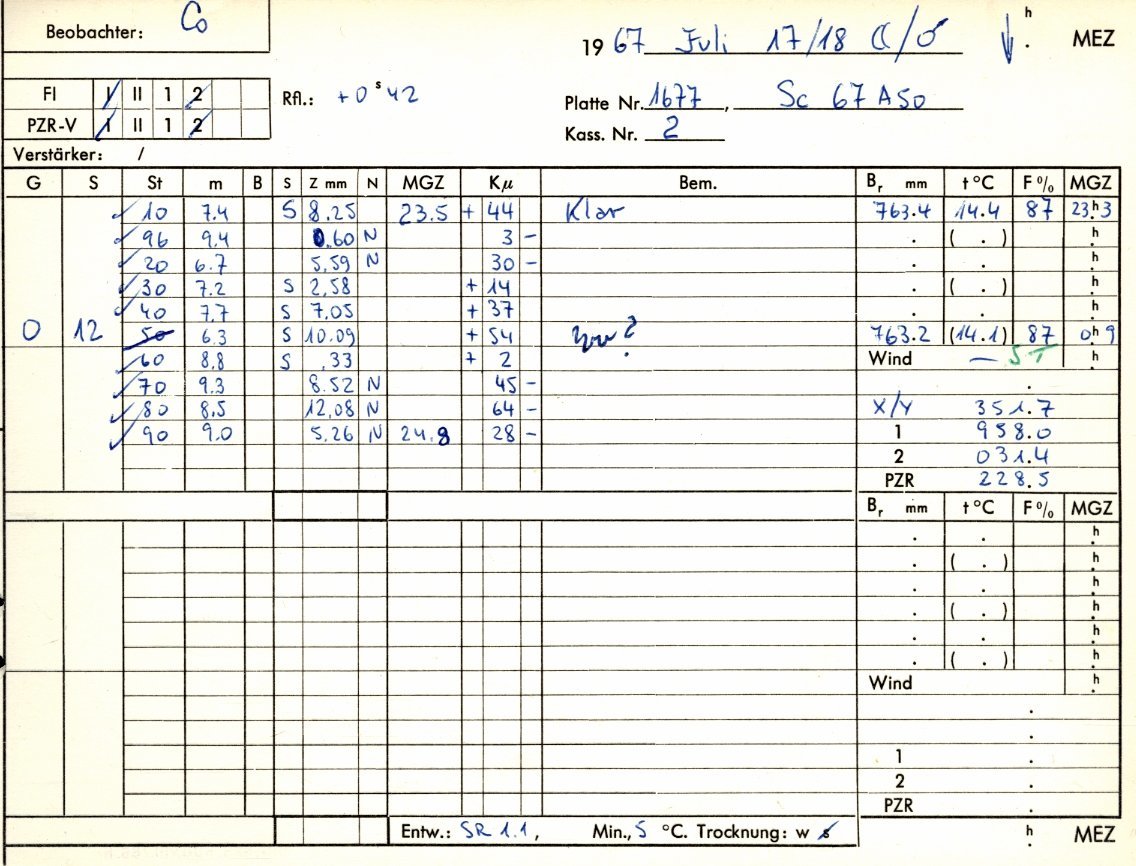 Beobachter: Co
1967 Juli 17/18 ☾/♂ ↓ h . MEZ
FI I II 1 2 Rfl.: +0 s 42 Platte Nr. 1677, Sc 67 A50
PZR-V I II 1 2 Kass. Nr. 2
Verstärker: /
G S St m B S Z mm N MGZ Kμ Bem. Br mm t °C F % MGZ
✓ 10 7.4 S 8.25 23.5 + 44 Klar 763.4 14.4 87 23.h3
✓ 96 9.4 0.60 N 3 - . ( . ) h.
✓ 20 6.7 5.59 N 30 - . . h.
✓ 30 7.2 S 2.58 + 14 . ( . ) h.
✓ 40 7.7 S 7.05 + 37 . . h.
0 12 50 6.3 S 10.09 + 54 ? 763.2 (14.1) 87 0h9
✓ 60 8.8 S .33 + 2 Wind — ST h.
✓ 70 9.3 8.52 N 45 - .
✓ 80 8.5 12.08 N 64 - X/Y 351.7
✓ 90 9.0 5.26 N 24.8 28 - 1 958.0
2 031.4
PZR 228.5
Br mm t °C F % MGZ
. . h.
. ( . ) h.
. . h.
. ( . ) h.
. . h.
. ( . ) h.
Wind h.
.
.
1 .
2 .
PZR .
Entw.: SR 1.1, Min., 5 °C. Trocknung: w s h . MEZ